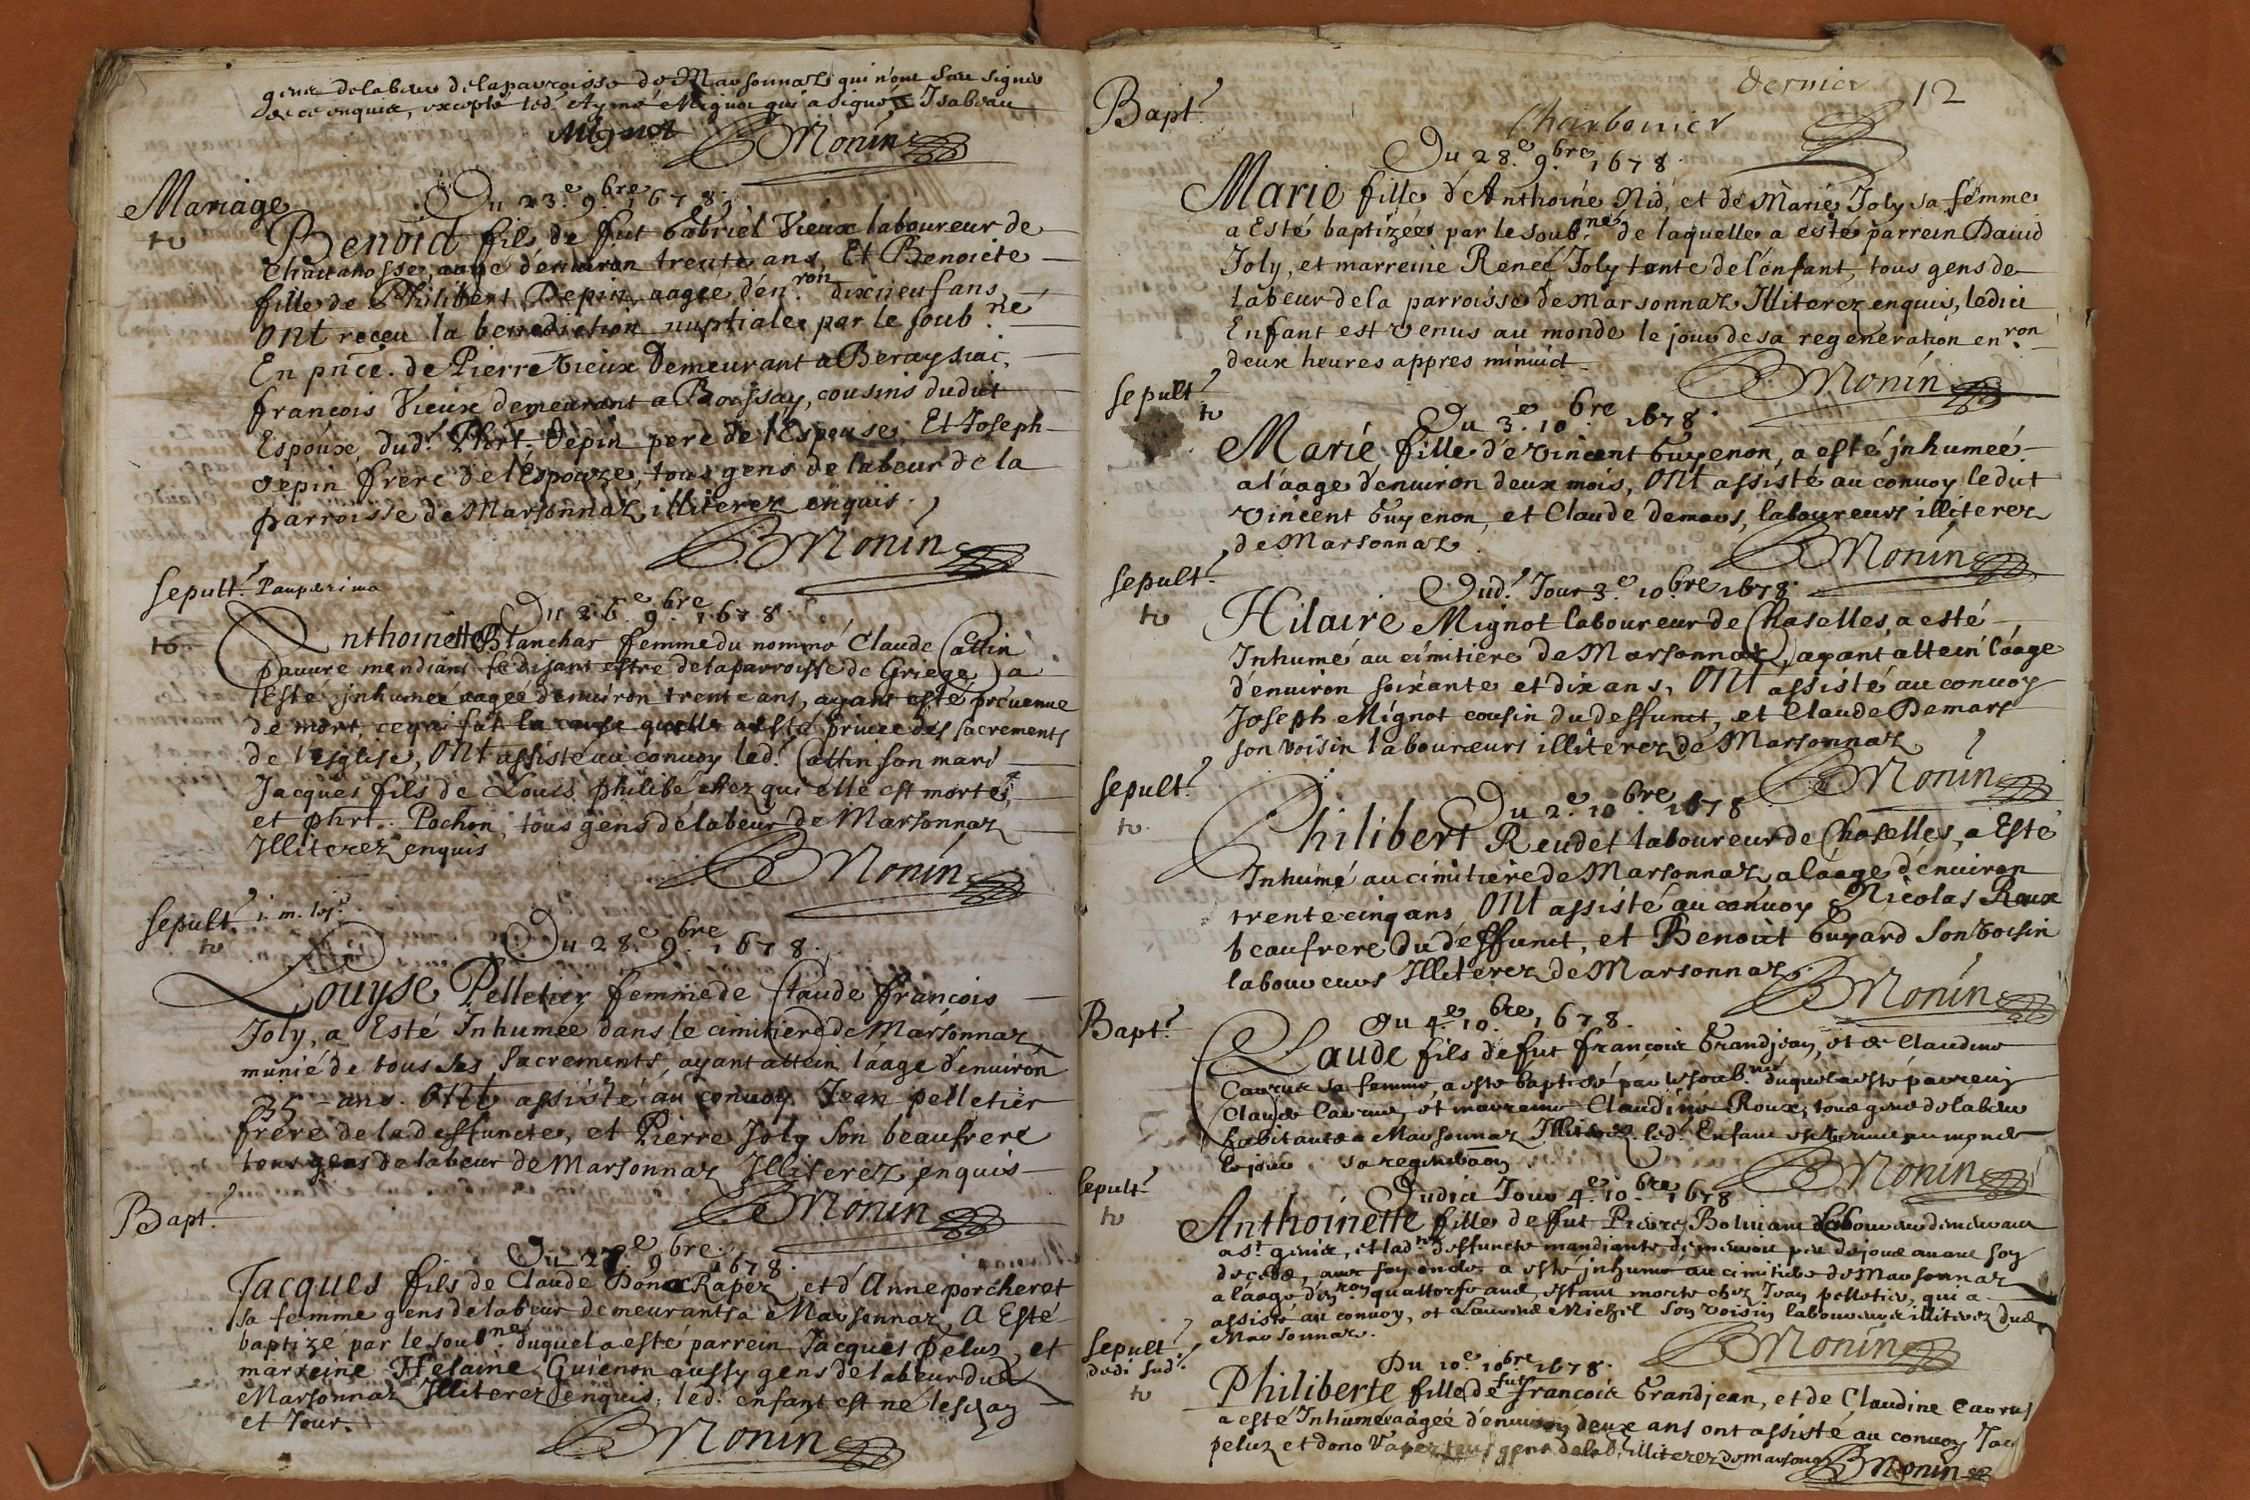 gens de labeur de la parroisse de Marsonnaz qui n'ont sceu signer
de ce enquis, excepté led. Aymé Mignot qui a signé Isabeau
Mignot BMonin
Mariage
Du 23.e 9.bre 1678.
to
Benoid fils de fut Gabriel Vieux laboureur de
Chauanosse, aagé d'enuiron trente ans, Et Benoicte
fille de Philibert Depin, aagee d'en.ron dixneuf ans
Ont receu la benediction nuptiale par le soub.né
En pñce. de Pierre Vieux Demeurant a
francois Vieux demeurant a Boissay, cousins dudit
Espoux, dud.t Phrt. Depin pere de l'Espouse, Et Joseph
Depin frere de l'Espouze, tous gens de labeur de la
parroisse de Marsonnaz illiterez enquis.
BMonin
Sepult.e Pauperima
Du 26.e 9.bre 1678.
to
Anthoinette Blanchar femme du nommé Claude Cattin
pauure mendiant se disant estre de la parroisse de Griege, a
Esté jnhumeé aageé d'enuiron trente ans, ayant esté préuenue
de mort, ce qui fût la cause quelle a esté priuée des sacrements
de l'Esglise, Ont assisté au conuoy led.t Cattin son mari
Jacques fils de Louis philibé chez qui elle est morte,
et phrt. Pochon, tous gens de labeur de Marsonnaz
Illiterez enquis
BMonin
Sepult.e
to
Du 28.e 9.bre 1678.
Louyse Pelletier femme de Claude francois
Joly, a Esté Inhumeé dans le cimitiere de Marsonnaz,
munié de tous ses sacrements, ayant attein l'aage d'enuiron
35 - ans. Ont assisté au conuoy Jean pelletier
frere de la deffuncte, et Pierre Joly son beaufrere
tous gens de labeur de Marsonnaz Illiterez enquis
BMonin
Bapt.e
Du 27.e 9.bre 1678.
Jacques fils de Claude Rapez, et d'Anne porcheret
sa femme gens de labeur demeurants a Marsonnaz, a Esté
baptizé par le soub.né duquel a esté parrein Jacques Peluz, et
marreine Helaine Guienon aussy gens de labeur dud.
Marsonnaz Illiterez enquis, led. enfant est né
et Jour.
BMonin
dernier 12
Charbonier
Bapt.e
Du 28.e 9.bre 1678.
Marie fille d'Anthoine Nid, et de Marie Joly sa femme
a Esté baptizeé par le soub.né de laquelle a esté parrein Dauid
Joly, et marreine Reneé Joly tante de l'enfant, tous gens de
labeur de la parroisse de Marsonnaz Illiterez enquis, ledict
Enfant est venus au monde le jour de sa regeneration en.ron
deux heures appres minuict
BMonin
Sepult.e
to
Du 3.e 10.bre 1678.
Marie fille de Vincent Guyenon, a esté jnhumeé
a l'aage d'enuiron deux mois, Ont assisté au conuoy ledit
Vincent Guyenon, et Claude demars, laboureurs illiterez
de Marsonnaz.
BMonin
Sepult.e
to
Dud.t Jour 3.e 10.bre 1678.
Hilaire Mignot laboureur de Chaselles, a esté
Inhumé au cimitiere de Marsonnaz, ayant attein l'aage
d'enuiron soixante et dix ans, Ont assisté au conuoy
Joseph Mignot cousin du deffunct, et Claude Demars
son voisin laboureurs illiterez de Marsonnaz
BMonin
Sepult.e
to
Du 2.e 10.bre 1678
Philibert Reudet laboureur de Chaselles, a Esté
Inhumé au cimitiere de Marsonnaz, a l'aage d'enuiron
trente cinq ans, Ont assisté au conuoy Nicolas Roux
beaufrere du deffunct, et Benoit Guyard son voisin
laboureurs Illiterez de Marsonnaz.
BMonin
Bapt.e
Du 4.e 10.bre 1678.
Claude fils de fut francois Grandjean, et de Claudine
sa femme, a esté baptizé par le soub.né duquel a esté parrein
Claude et marreine Claudine Roux, tous gens de labeur
habitants a Marsonnaz Illiterez. led.t Enfant est venu au monde
le jour sa regeneration
BMonin
Sepult.e
to
Dudict Jour 4.e 10.bre 1678
Anthoinette fille de fut Pierre laboureur demeurant
a St. genix, et lad.te deffuncte mandiante demeuroit peu de jour auant son
decedz, a esté jnhumé au cimitiere de Marsonnaz
a l'aage d'en.ron quattorse ans, estant morte chez Jean pelletier, qui a
assisté au conuoy, et Michel son voisin laboureurs illiterez dud.
Marsonnaz.
BMonin
Sepult.e
to
Du 10.e 10.bre 1678.
Philiberte fille de fut francois Grandjean, et de Claudine
a esté Inhumeé aageé d'enuiron deux ans ont assisté au conuoy
peluz et tous gens de lab. illiterez de Marsonnaz
BMonin